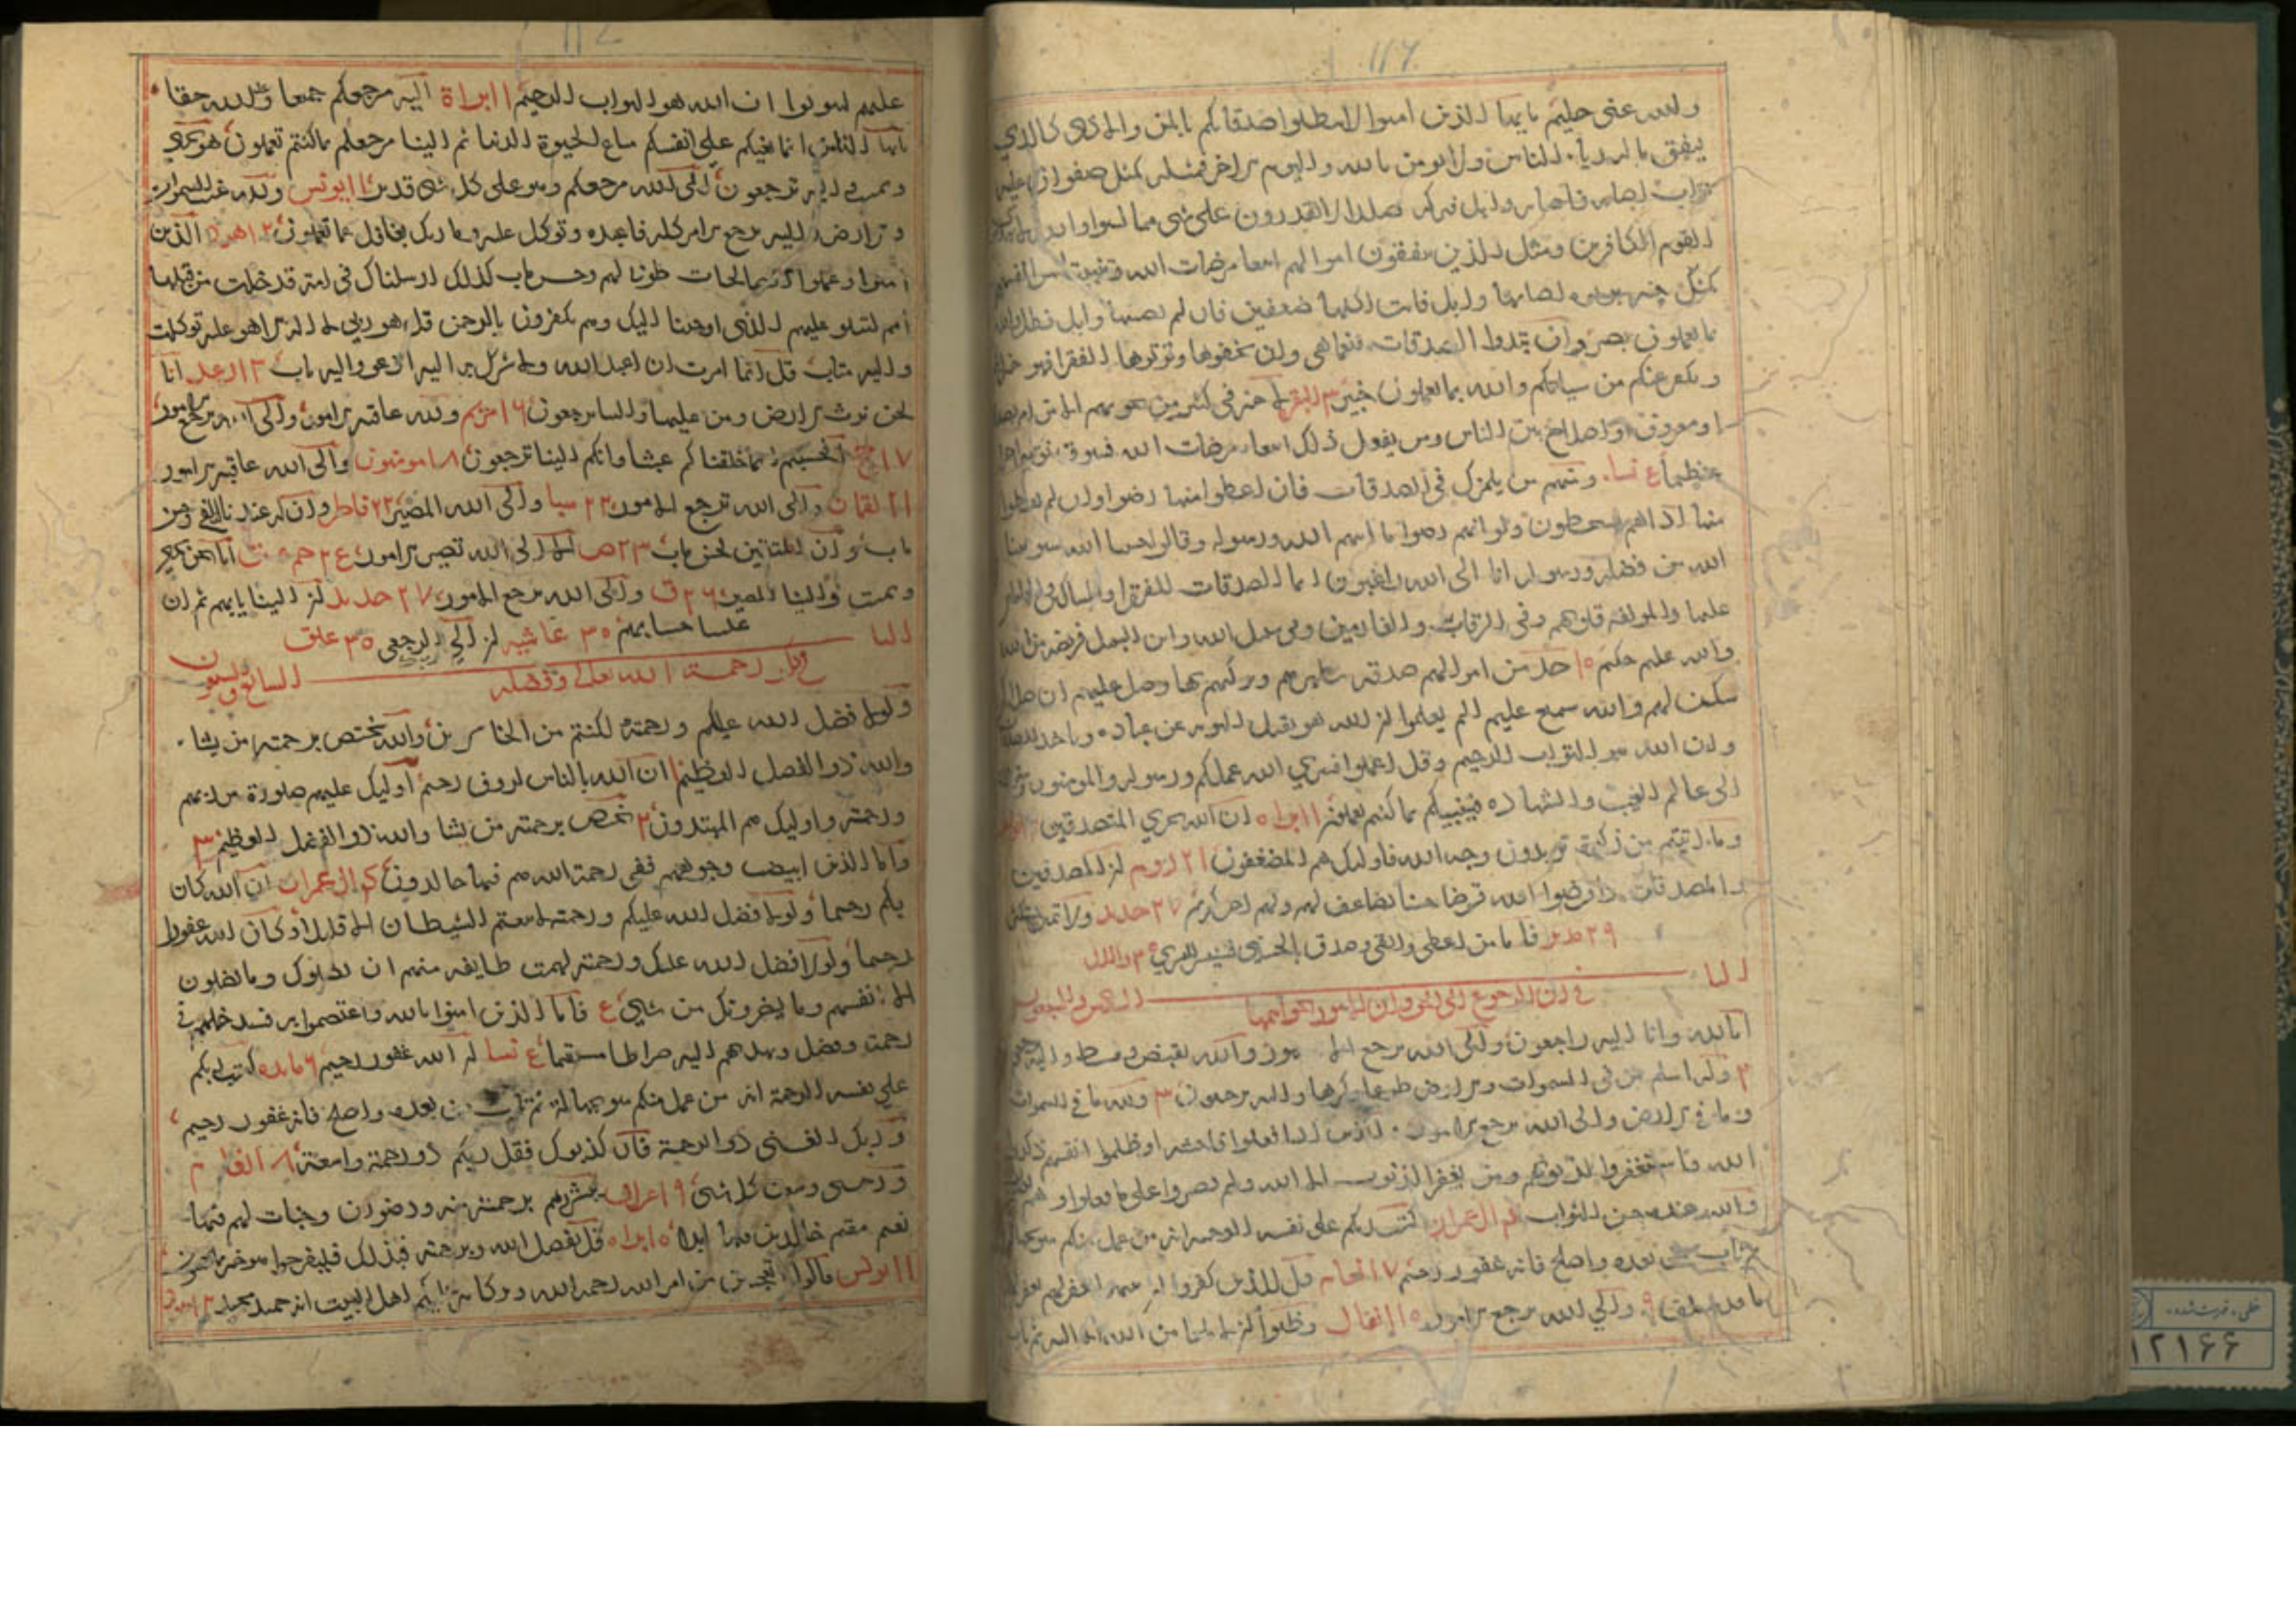 والله غني حليم يا يها الذين امنوا لا تبطلوا صدقاتكم بالمن والاذى كالذي
ينفق ماله رياء الناس ولا يومن بالله واليوم الاخر فمثله كمثل صفوان عليه
تراب فاصابه وابل فتركه صلدا لا يقدرون على شي مما كسبوا والله لا يهدي
القوم الكافرين ومثل الذين ينفقون اموالهم ابتغا مرضات الله وتثبيتا من انفسهم
كمثل جنة بربوه اصابها وابل فاتت اكلها ضعفين فان لم يصبها وابل فطل والله
بما تعملون بصير وان تبدوا الصدقات فنعما هي وان تخفوها وتوتوها الفقرا فهو خير
ويكفر عنكم من سياتكم والله بما تعملون خبير ٣ البقره لا خير في كثير من نجويهم الا من امر بصدقة
او معروف او اصلاح بين الناس ومن يفعل ذلك ابتغا مرضات الله فسوف نوتيه اجرا
عظيما ع نسا ومنهم من يلمزك في الصدقات فان اعطوا منها رضوا وان لم يعطوا
منها اذا هم يسخطون ولو انهم رضوا ما اتيهم الله ورسوله وقالوا حسبنا الله سيوتينا
الله من فضله ورسوله انا الى الله راغبون انما الصدقات للفقرا والمساكين والعاملين
عليها والمولفة قلوبهم وفي الرقاب والغارمين وفي سبيل الله وابن السبيل فريضة من الله
والله عليم حكيم ١٥ خذ من اموالهم صدقة تطهرهم وتزكيهم بها وصل عليهم ان صلاتك
سكن لهم والله سميع عليم الم يعلموا ان الله هو يقبل التوبه عن عباده وياخذ الصدقات
وان الله هو التواب الرحيم وقل اعملوا فسيري الله عملكم ورسوله والمومنون وستردون
الى عالم الغيب والشهاده فينبيكم بما كنتم تعملون ١١ براه ان الله يجزي المتصدقين
وما اتيتم من زكوة تريدون وجه الله فاوليك هم المضعفون ٢١ روم ان المصدقين
والمصدقات واقرضوا الله قرضا حسنا يضاعف لهم ولهم اجر كريم ٢٧ حديد ولا تمنن تستكثر
٢٩ مدثر فاما من اعطى واتقى وصدق بالحسنى فسنيسره لليسري ٣٠ والليل
البا
في ان الرجوع الى الله وان الامور
انا لله وانا اليه راجعون والى الله ترجع الامور والله يقبض ويبسط واليه ترجعون
٣ وله اسلم من في السموات والارض طوعا وكرها واليه يرجعون ٣ ولله ما في السموات
وما في الارض والى الله ترجع الامور والذين اذا فعلوا فاحشه او ظلموا انفسهم ذكروا
الله فاستغفروا لذنوبهم ومن يغفر الذنوب الا الله ولم يصروا على ما فعلوا وهم يعلمون
والله عنده حسن الثواب ٤ ال عمران كتب ربكم على نفسه الرحمة انه من عمل منكم سوء بجهالة
ثم تاب من بعده واصلح فانه غفور رحيم ٧ انعام قل للذين كفروا ان ينتهوا يغفر لهم
ما قد سلف ٩ والى الله ترجع الامور ١٥ انفال وظنوا ان لا ملجا من الله الا اليه ثم تاب
عليهم ليتوبوا ان الله هو التواب الرحيم ١١ براة اليه مرجعكم جمعا وعد الله حقا
يايها الناس انما بغيكم على انفسكم متاع الحيوة الدنيا ثم الينا مرجعكم ما كنتم تعملون هو يحيي
ويميت واليه ترجعون الى الله مرجعكم وهو على كل شي قدير ١١ يونس ولله غيب السموات
والارض واليه يرجع الامر كله فاعبده وتوكل عليه وما ربك بغافل عما تعملون ١٢ هود الذين
امنوا وعملوا الصالحات طوبى لهم وحسن ماب كذلك ارسلناك في امة قد خلت من قبلها
امم لتتلو عليهم الذي اوحينا اليك وهم يكفرون بالرحمن قل هو ربي لا اله الا هو عليه توكلت
واليه متاب قل انما امرت ان اعبد الله ولا اشرك به اليه ادعو واليه ماب ١٣ الرعد انا
نحن نرث الارض ومن عليها والينا يرجعون ١٦ مريم ولله عاقبة الامور والى الله ترجع الامور
١٧ حج افحسبتم انما خلقناكم عبثا وانكم الينا ترجعون ١٨ مومنون والى الله عاقبة الامور
٢١ لقمان والى الله ترجع الامور ٢٢ سبا والى الله المصير ٢٢ فاطر وان له عندنا لزلفى وحسن
ماب وان للمتقين لحسن ماب ٢٣ ص الا الى الله تصير الامور ع٢ حم انا نحن نحيي
ونميت والينا المصير ٢٦ ق والى الله ترجع الامور ٢٧ حديد ان الينا ايابهم ثم ان
علينا حسابهم ٣٠ غاشيه ان الى ربك الرجعى ٣٥ علق
البا السابع والسبعون
في رحمت الله تعالى وفضله
ولولا فضل الله عليكم ورحمته لكنتم من الخاسرين والله يختص برحمته من يشا
والله ذو الفضل العظيم ان الله بالناس لروف رحيم اوليك عليهم صلوة من ربهم
ورحمته واوليك هم المهتدون ٢ يختص برحمته من يشا والله ذو الفضل العظيم ٣
واما الذين ابيضت وجوههم ففي رحمت الله هم فيها خالدون ٤ ال عمران ان الله كان
بكم رحيما ولولا فضل الله عليكم ورحمته لاتبعتم الشيطان الا قليلا وكان الله غفورا
رحيما ولولا فضل الله عليك ورحمته لهمت طايفه منهم ان يضلوك وما يضلون
الا انفسهم وما يضرونك من شي ع فاما الذين امنوا بالله واعتصموا به فسيدخلهم في
رحمت وفضل ويهديهم اليه صراطا مستقيما ع نسا ان الله غفور رحيم ٦ مايده كتب ربكم
على نفسه الرحمة انه من عمل منكم سوء بجهالة ثم تاب من بعده واصلح فانه غفور رحيم
وربك الغني ذو الرحمة فان كذبوك فقل ربكم ذو رحمة واسعة ٨ انعام
ورحمتي وسعت كل شي ٩ اعراف يبشرهم برحمة منه ورضوان وجنات لهم فيها
نعيم مقيم خالدين فيها ابدا ١٥ براه قل بفضل الله وبرحمته فبذلك فليفرحوا هو خير مما يجمعون
١١ يونس قالوا اتعجبين من امر الله رحمة الله وبركاته عليكم اهل البيت انه حميد مجيد ١٢ هود
١٢١٦۶